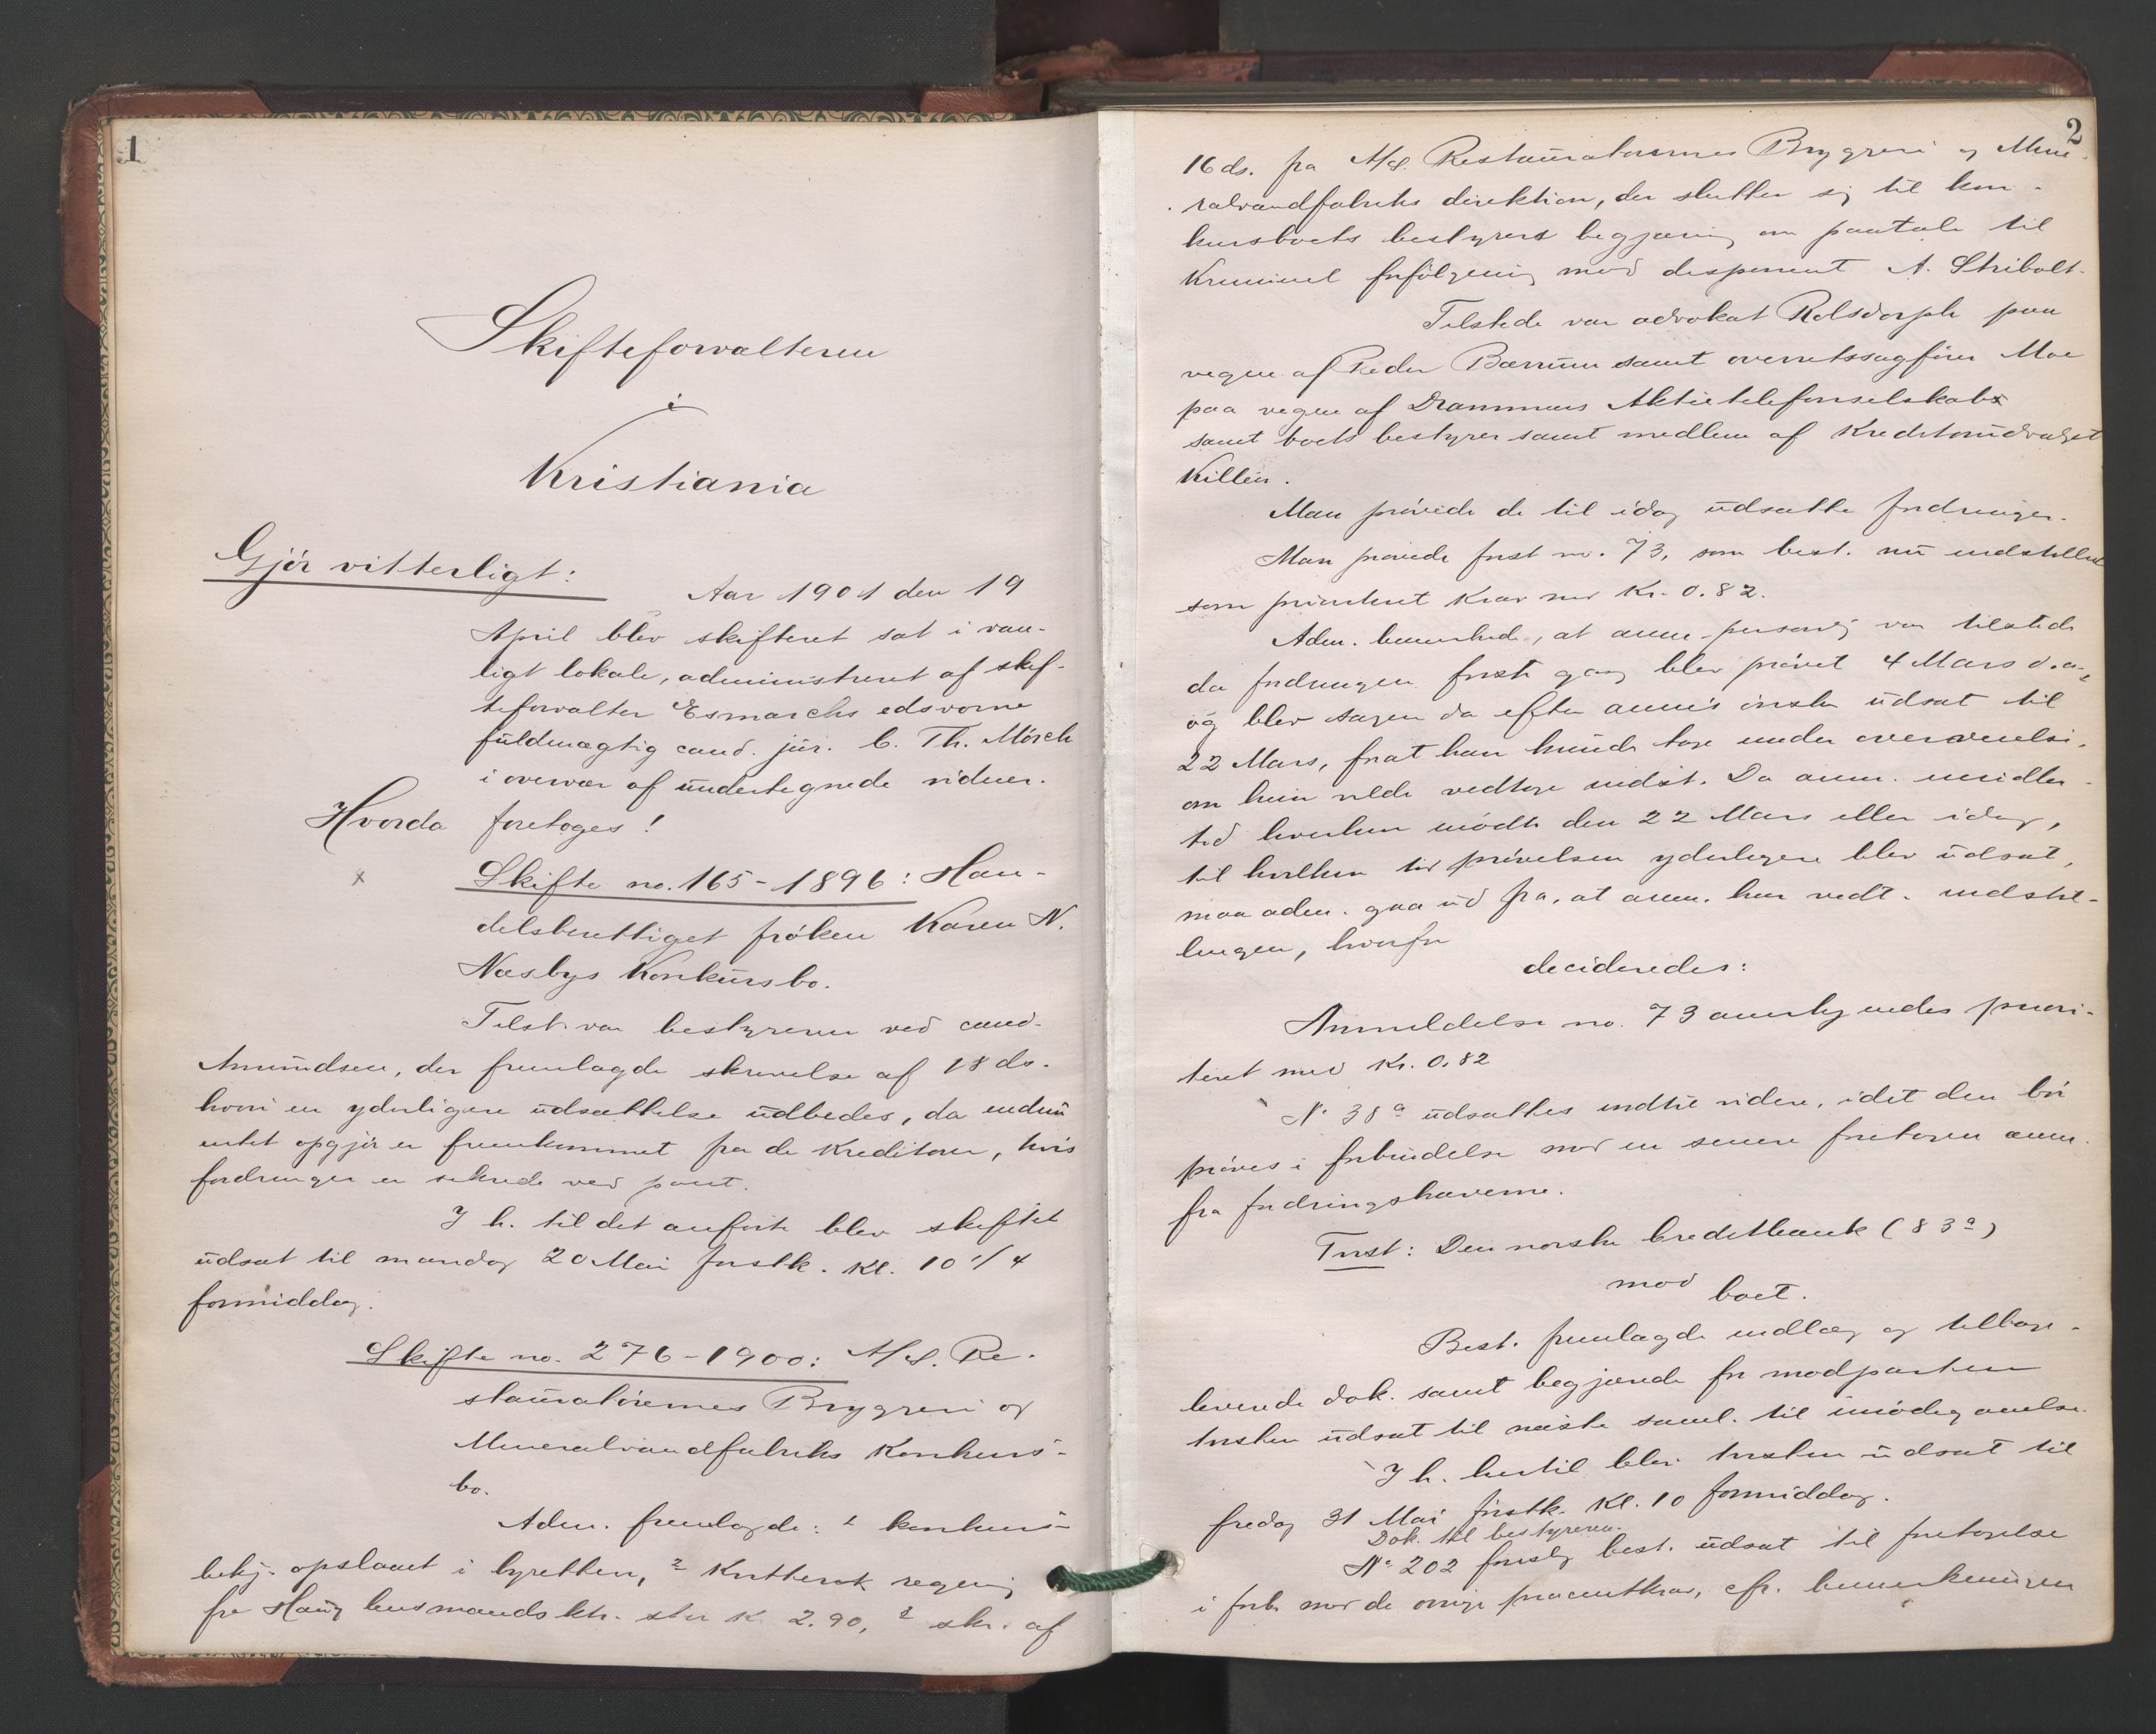 1
Skifteforvalteren
i
Kristiania
Gjör vitterligt:
Aar 1901 den 19
April blev skifteret sat i van-
ligt lokale, administreret af skif-
teforvalter Esmarchs edsvorne
fuldmægtig cand. jur. C. Th. Mörch
i overvær af undertegnede vidner.
Hvorda foretoges!
x
Skifte no. 165-1896: Han-
delsberettiget fröken Karen N.
Næsbys Konkursbo.
Tilst. var bestyreren ved cand.
Amundsen, der fremlagde skrivelse af 18 ds.
hvori en yderligere udsættelse udbedes, da endnu
intet opgjör er fremkommet fra de Kreditorer, hvis
fordringer er sikrede ved pant.
I h. til det anförte blev skiftet
udsat til mandag 20 Mai förstk. Kl. 10 1/4
formiddag.
Skifte no. 276-1900: A/S. Re-
stauratörernes Bryggeri og
Mineralvandfabriks Konkurs-
bo.
Adm. fremlagde: 1 konkurs-
bekj. opslaaet i byretten, 2 Kvitteret regning
fra Haug lensmands ktr. stor K 2.90, 3 skr. af
2
16 ds. fra A/S. Restauratörernes Bryggeri og Mine-
ralvandfabriks direktion, der slutter sig til kon-
kursboets bestyrers begjæring om paatale til
Kriminel forfölgning mod disponent A. Stribolt.
Tilstede var advokat Rolsdorph paa
vegne af Peder Bærum samt overretssagförer Moe
paa vegne af Drammens Aktietelefonselskab
samt boets bestyrer samt medlem af Kreditorudvalget
Killén.
Man prövede de til idag udsatte fordringer.
Man prövede först no. 73, som best. nu indstilled
som prioriteret Krav med Kr. 0.82.
Adm. bemerkede, at anm. personlig var tilstede
da fordringen förste gang blev prövet 4 Mars d.a.,
og blev sagen da efter anm's önske udsat til
22 Mars, forat han kunde tage under overveielse,
om han vilde vedtage indst. Da anm. imidler-
tid hverken mödte den 22 Mars eller idag,
til hvilken tid prövelsen yderligere blev udsat,
maa adm. gaa ud fra, at anm. har vedt. indstil-
lingen, hvorfor
decideredes:
Anmeldelse no. 73 anerkjendes priori-
teret med Kr. 0,82
No 38a udsattes indtil videre, idet den bör
pröves i forbindelse med en senere foretagen anm.
fra fordringshaverne.
Tvist: Den norske Creditbank (83a)
mod
boet.
Best. fremlagde indlæg og tilbage-
leverede dok. samt begjærede for modparten
tvisten udsat til næste saml. til imödegaaelse.
I h. hertil blev tvisten udsat til
fredag 31 Mai förstk. Kl. 10 formiddag.
Dok. til bestyreren.
No 202 foreslog best. udsat til foretagelse
i forb. med de övrige procentkrav, cfr. bemerkningen